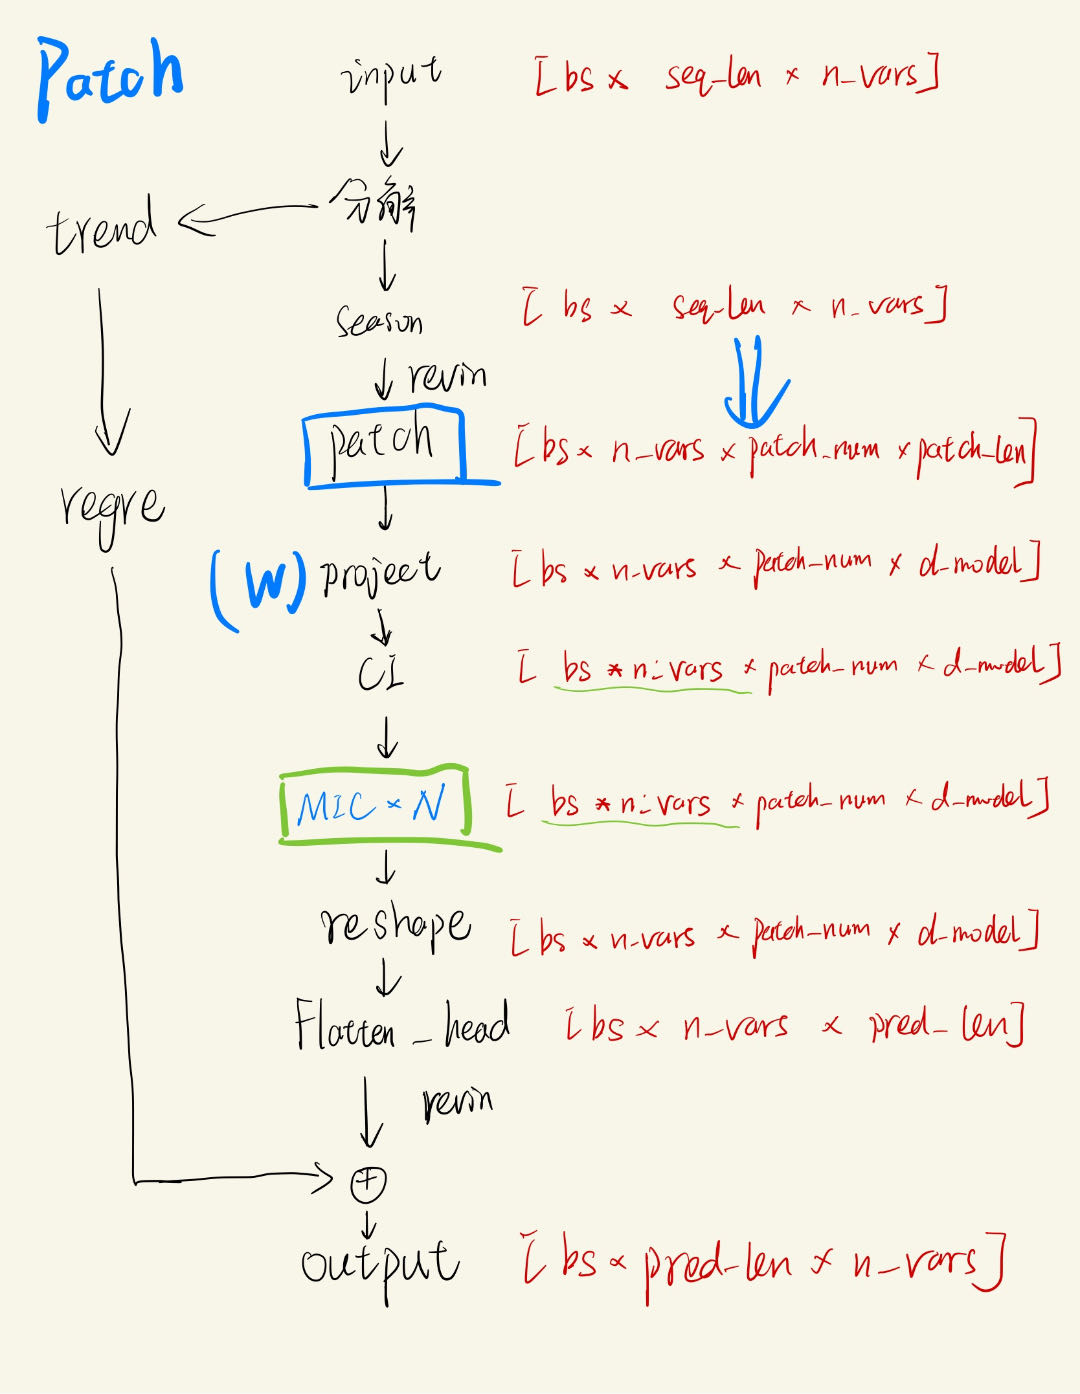 Patch
input [bs × seq_len × n_vars]
分解
trend
season [bs × seq_len × n_vars]
revin
patch [bs × n_vars × patch_num × patch_len]
regre
(W) project [bs × n_vars × patch_num × d_model]
CI [bs * n_vars × patch_num × d_model]
MIC × N [bs * n_vars × patch_num × d_model]
reshape [bs × n_vars × patch_num × d_model]
Flatten_head [bs × n_vars × pred_len]
revin
+
output [bs × pred_len × n_vars]